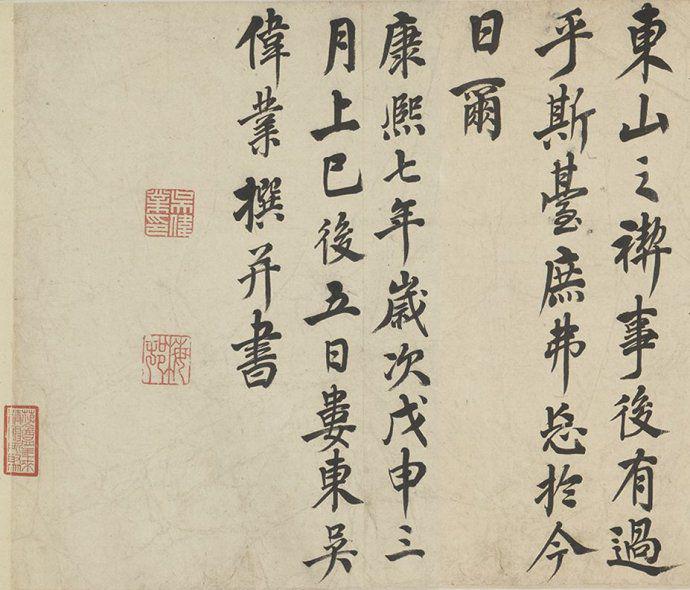 東山之禊事後有過
乎斯臺庶弗忘於今
日爾
康熙七年歲次戊申三
月上巳後五日婁東吳
偉業撰并書
吳偉業印
梅邨